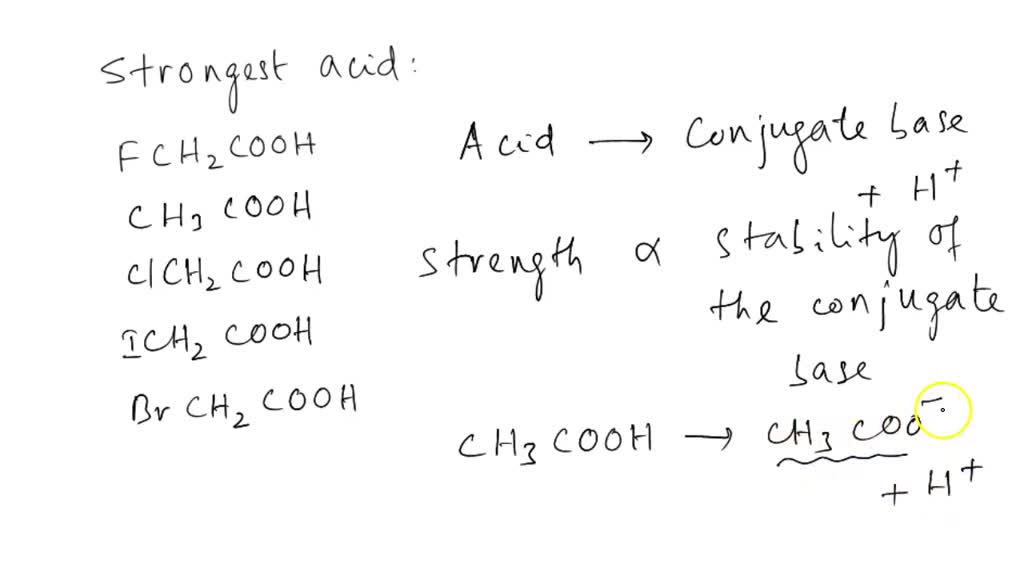 Strongest acid:
FCH₂COOH
CH₃COOH
ClCH₂COOH
ICH₂COOH
BrCH₂COOH
Acid → Conjugate base
+ H⁺
Strength ∝ stability of
the conjugate
base
CH₃COOH → CH₃COO⁻
+ H⁺